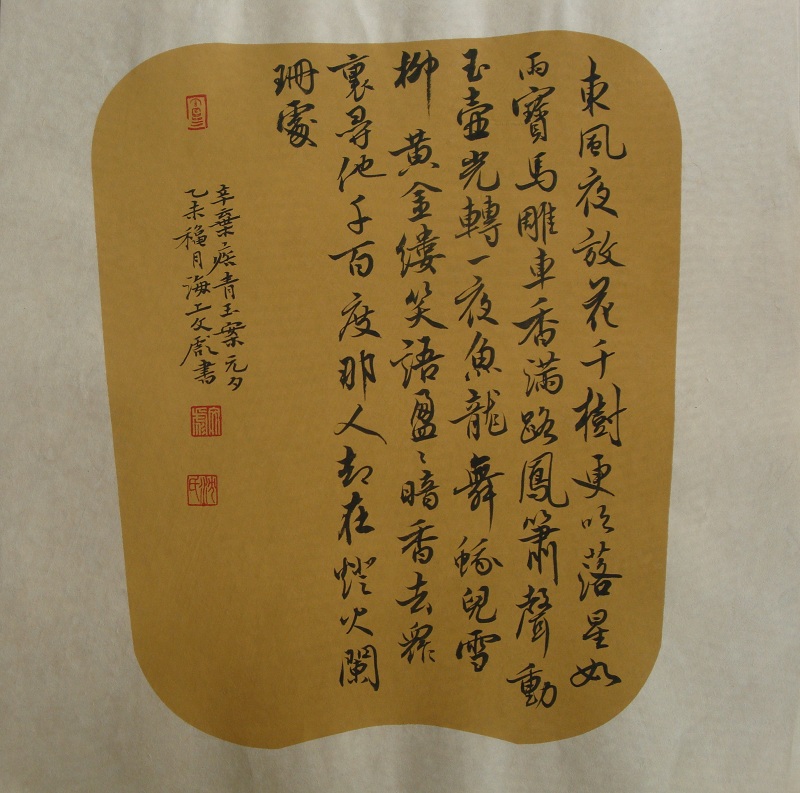 東風夜放花千樹更吹落星如
雨寶馬雕車香滿路鳳簫聲動
玉壺光轉一夜魚龍舞蛾兒雪
柳黃金縷笑語盈〻暗香去衆
裏尋他千百度那人却在燈火闌
珊處
辛棄疾青玉案元夕
乙未穐月海上文書